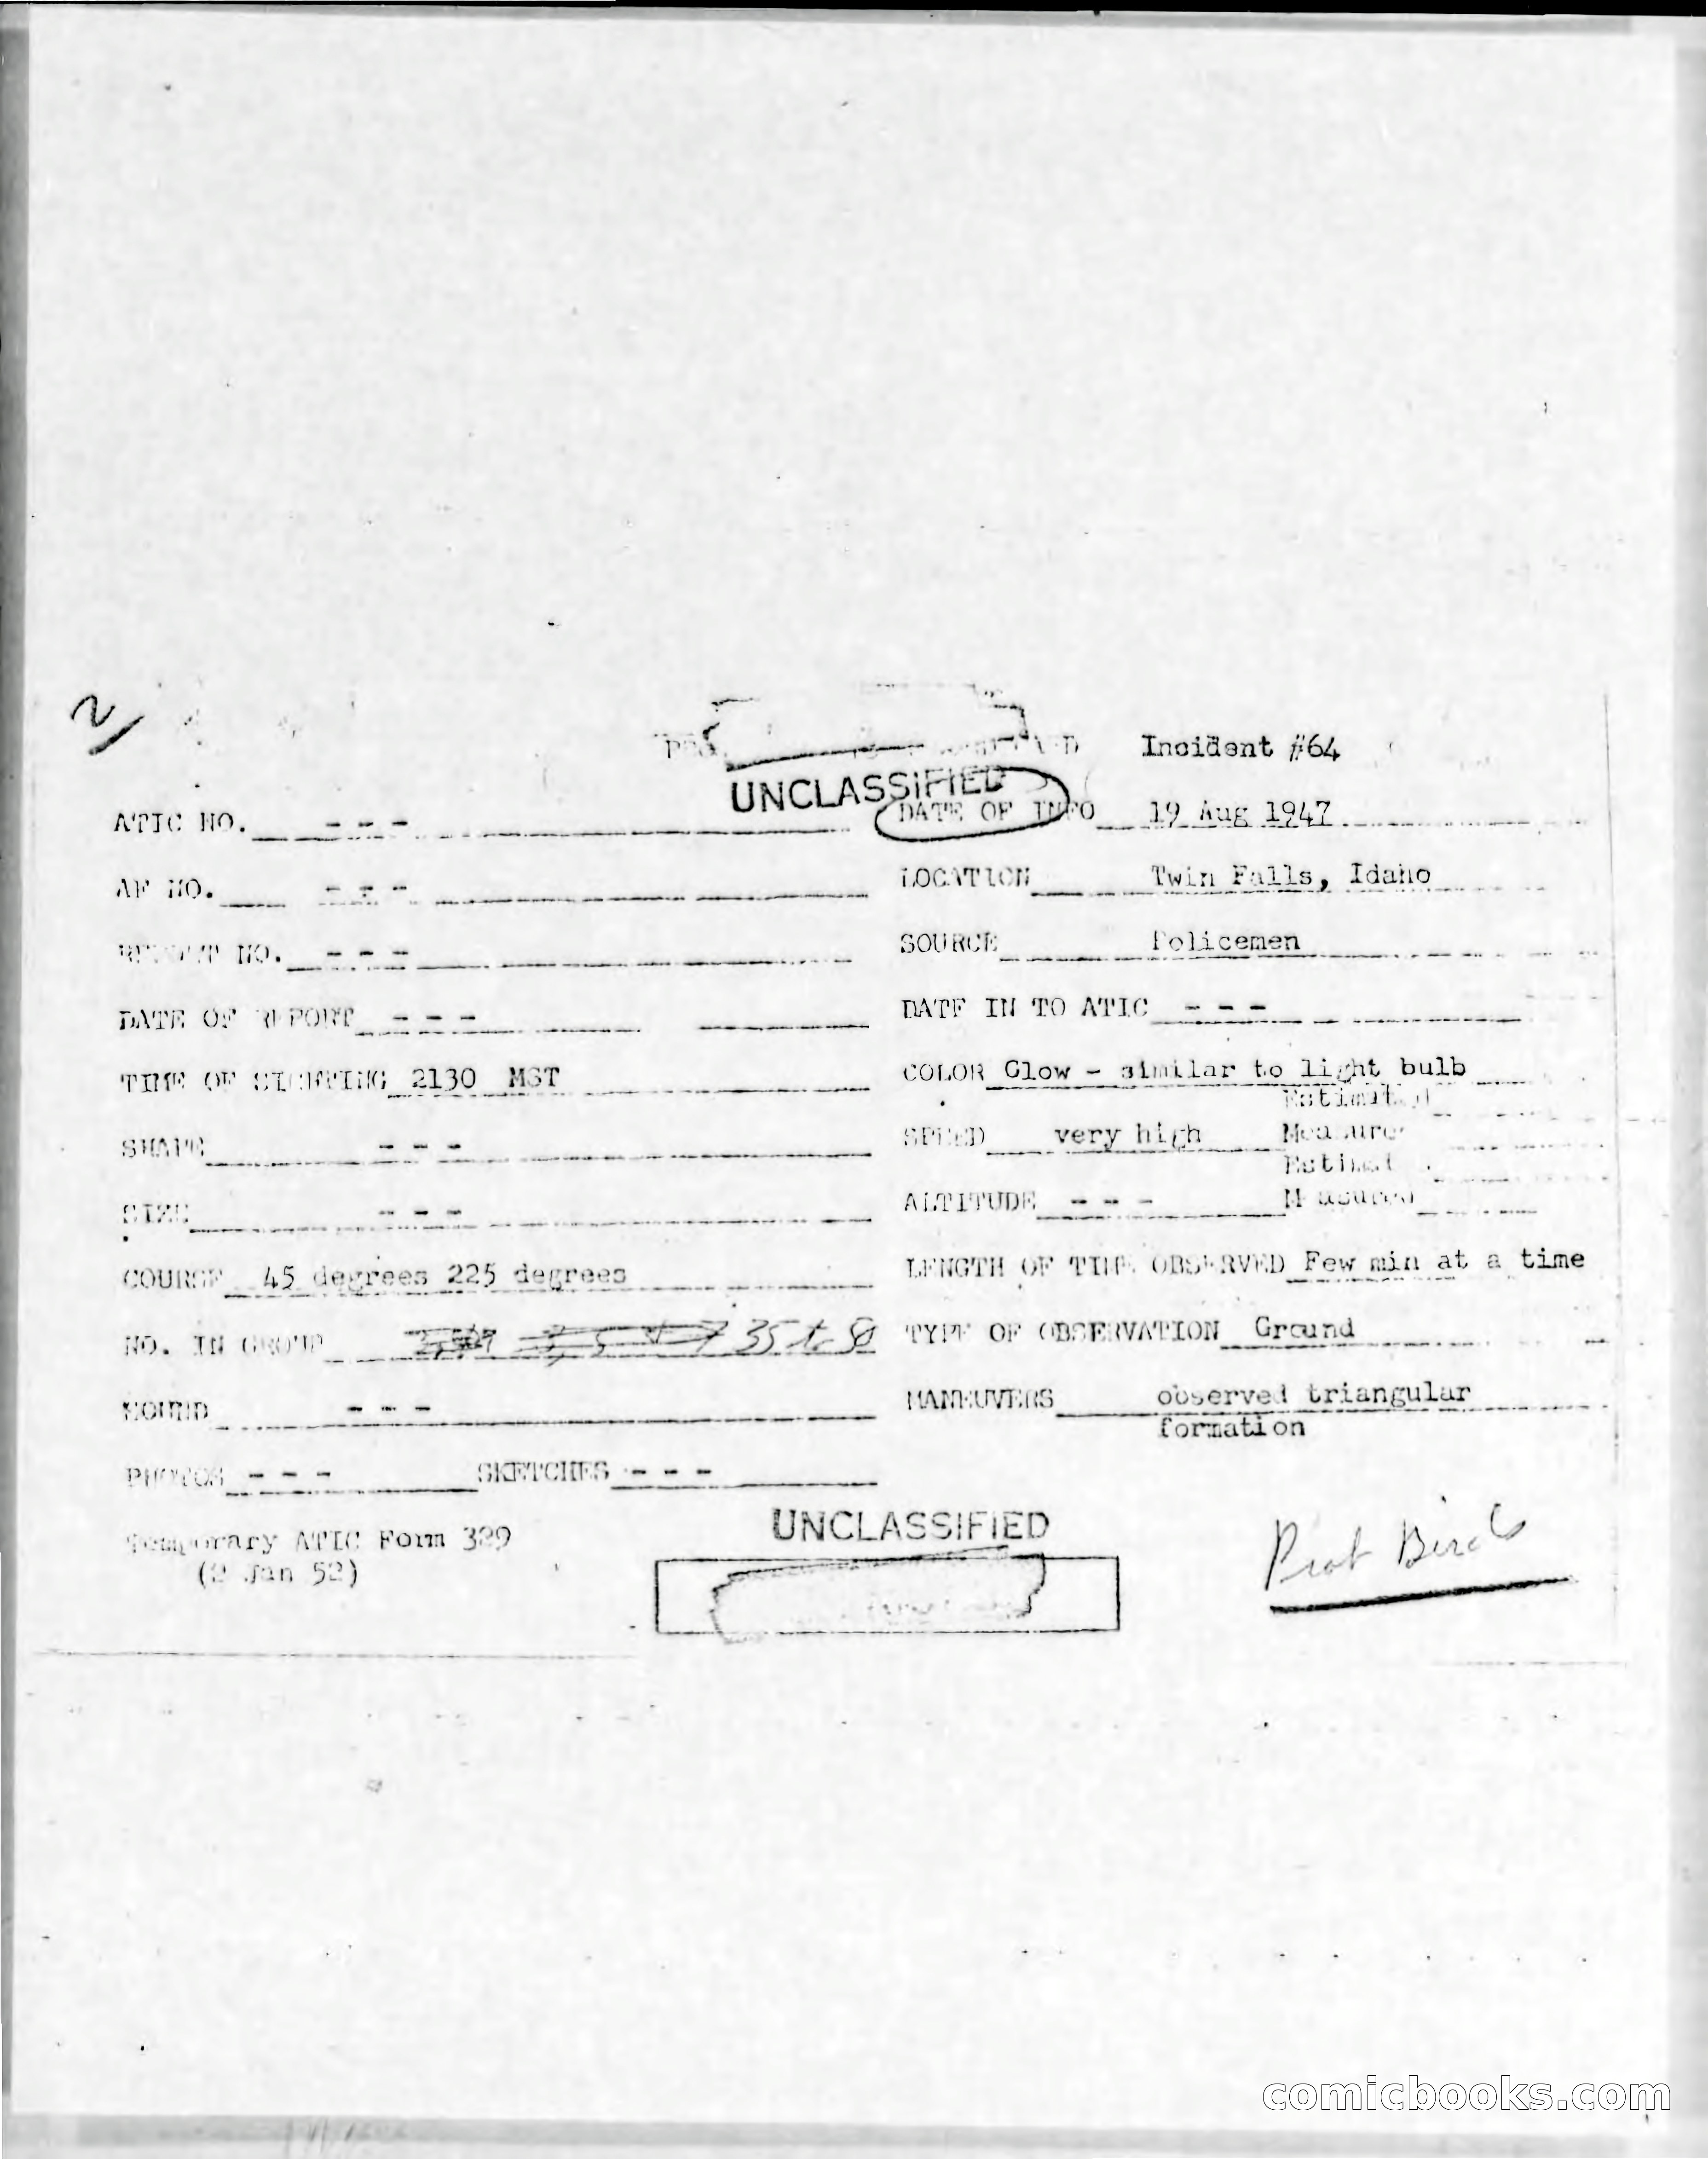 2
Incident #64
UNCLASSIFIED
ATIC NO. - - - DATE OF INFO 19 Aug 1947
AF NO. - - - LOCATION Twin Falls, Idaho
REPORT NO. - - - SOURCE Policemen
DATE OF REPORT - - - DATE IN TO ATIC - - -
TIME OF SIGHTING 2130 MST COLOR Glow - similar to light bulb
Estimated
SHAPE - - - SPEED very high Measured
Estimated
SIZE - - - ALTITUDE - - - Measured
COURSE 45 degrees 225 degrees LENGTH OF TIME OBSERVED Few min at a time
NO. IN GROUP 35 to 50 TYPE OF OBSERVATION Ground
SOUND - - - MANEUVERS observed triangular
formation
PHOTOS - - - SKETCHES - - -
Temporary ATIC Form 329
(2 Jan 52)
UNCLASSIFIED
Prob Birds
comicbooks.com